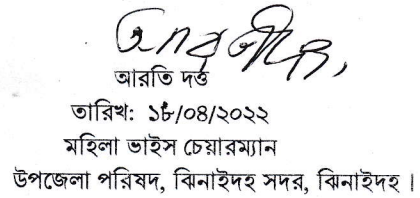 আরতি দত্ত
আরতি দত্ত
তারিখ: ১৮/০৪/২০২২
মহিলা ভাইস চেয়ারম্যান
উপজেলা পরিষদ, ঝিনাইদহ সদর, ঝিনাইদহ।